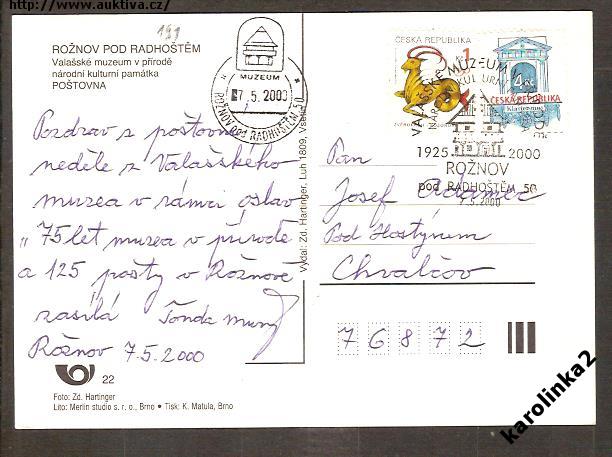 http://www.auktiva.cz/
191
ROŽNOV POD RADHOŠTĚM
Valašské muzeum v přírodě
národní kulturní památka
POŠTOVNA
MUZEUM
7.5.2000
ROŽNOV pod RADHOŠTĚM 50
ČESKÁ REPUBLIKA
1
4
ČESKÁ REPUBLIKA
VALAŠSKÉ MUZEUM
1925 2000
ROŽNOV
pod RADHOŠTĚM 50
7.5.2000
Pozdrav z poštovní
neděle z Valašského
muzea v rámci oslav
„75 let muzea v přírodě
a 125 pošty v Rožnově
zasílá Tonda
Rožnov 7.5.2000
Vydal: Zd. Hartinger, Luh 1809, Vsetín
Pan
Josef Adamec
Pod Hostýnem
Chvalčov
76872
22
Foto: Zd. Hartinger
Lito: Merlin studio s. r. o., Brno • Tisk: K. Matula, Brno
karolinka2